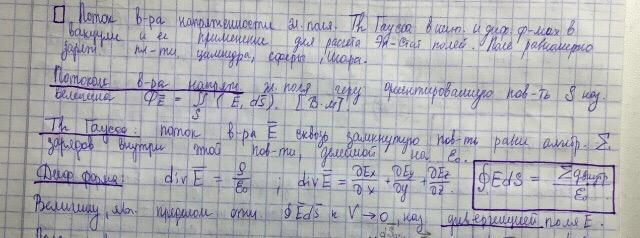 Поток в-ра напряженности эл. поля. Th Гаусса в инт. и диф. ф-мах в
вакууме и её применение для расчёта Эл-стат полей. Поле равномерно
заряж пл-ти, цилиндра, сферы, шара.
Потоком в-ра напряж эл. поля через ориентированную пов-ть S наз.
величина Φ_E = ∬_S (E, dS). [В·м].
Th Гаусса: поток в-ра E сквозь замкнутую пов-ть равен алгебр. Σ
зарядов внутри этой пов-ти, деленной на ε₀.
Дифф форма: div E = ρ/ε₀ ; div E = ∂Ex/∂x + ∂Ey/∂y + ∂Ez/∂z. ∮EdS = Σqвнутр/ε₀
Величину, явл пределом отн. ∮EdS к V→0, наз дивергенцией поля E.